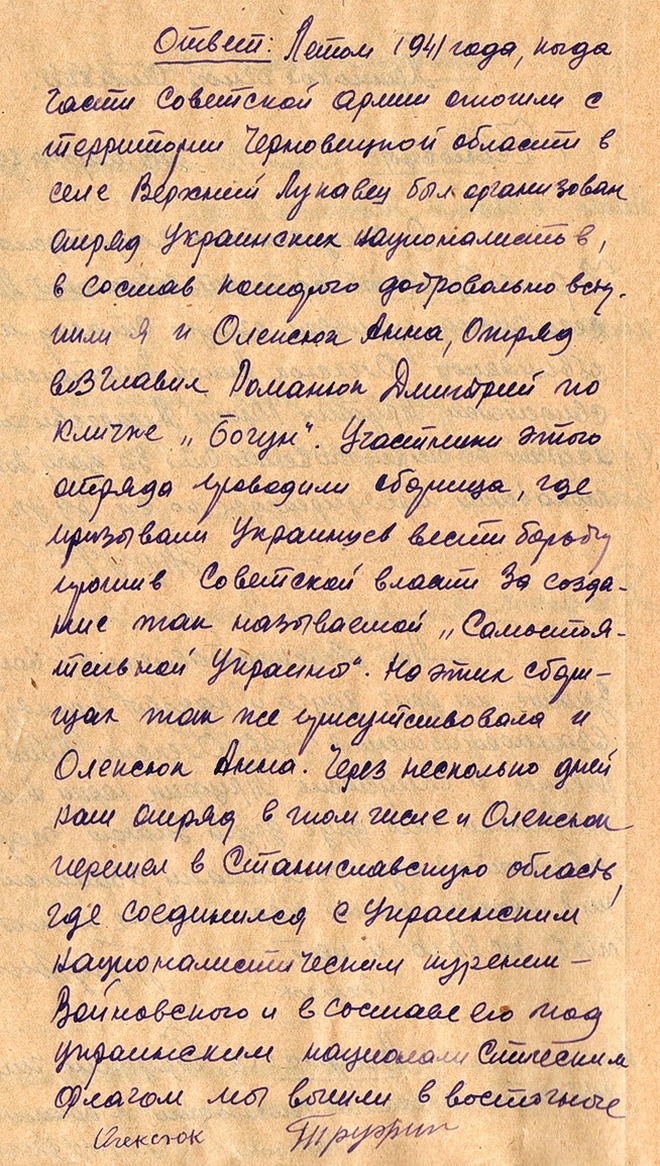 Ответ: Летом 1941 года, когда
части Советской армии отошли с
территории Черновицкой области в
селе Верхний Лукавец был организован
отряд Украинских националистов,
в состав которого добровольно всту-
пили я и Олексюк Анна, Отряд
возглавил Романюк Дмитрий по
кличке „Богун“. Участники этого
отряда проводили сборища, где
призывали Украинцев вести борьбу
против Советской власти За созда-
ние так называемой „Самостоя-
тельной Украины“. На этих сбори-
щах так же присутствовала и
Олексюк Анна. Через несколько дней
наш отряд в том числе и Олексюк
перешел в Станиславскую область,
где соединился с Украинским
националистическим куренем –
Войновского и в составе его под
украинским националистическим
флагом мы вышли в восточные
Олексюк